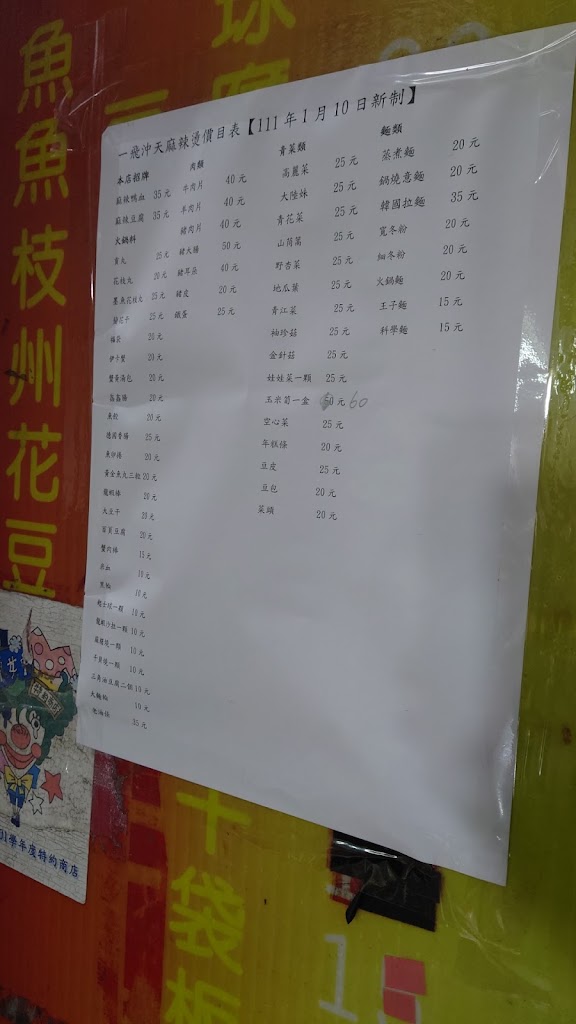 一飛沖天麻辣燙價目表【111年1月10日新制】
本店招牌
麻辣鴨血 35元
麻辣豆腐 35元
火鍋料
魚丸 25元
花枝丸 20元
墨魚花枝丸 25元
25元
福袋 20元
伊卡蟹 20元
蟹黃滿包 20元
20元
魚餃 20元
德國香腸 25元
20元
黃金魚丸三粒 20元
龍蝦棒 20元
大豆干 20元
百頁豆腐 20元
蟹肉棒 15元
米血 10元
10元
起士球一顆 10元
龍蝦沙拉一顆 10元
一顆 10元
干貝燒一顆 10元
三角油豆腐二個 10元
10元
35元
肉類
牛肉片 40元
羊肉片 40元
豬肉片 40元
豬大腸 50元
豬耳朵 40元
豬皮 20元
鐵蛋 25元
青菜類
高麗菜 25元
大陸妹 25元
青花菜 25元
山茼蒿 25元
野杏菜 25元
地瓜葉 25元
青江菜 25元
袖珍菇 25元
金針菇 25元
娃娃菜一顆 25元
玉米筍一盒 50元 60
空心菜 25元
年糕條 20元
豆皮 25元
豆包 20元
菜頭 20元
麵類
蒸煮麵 20元
鍋燒意麵 20元
韓國拉麵 35元
寬冬粉 20元
細冬粉 20元
火鍋麵 20元
王子麵 15元
科學麵 15元
魚魚枝州花豆
學年度特約商店
袋板